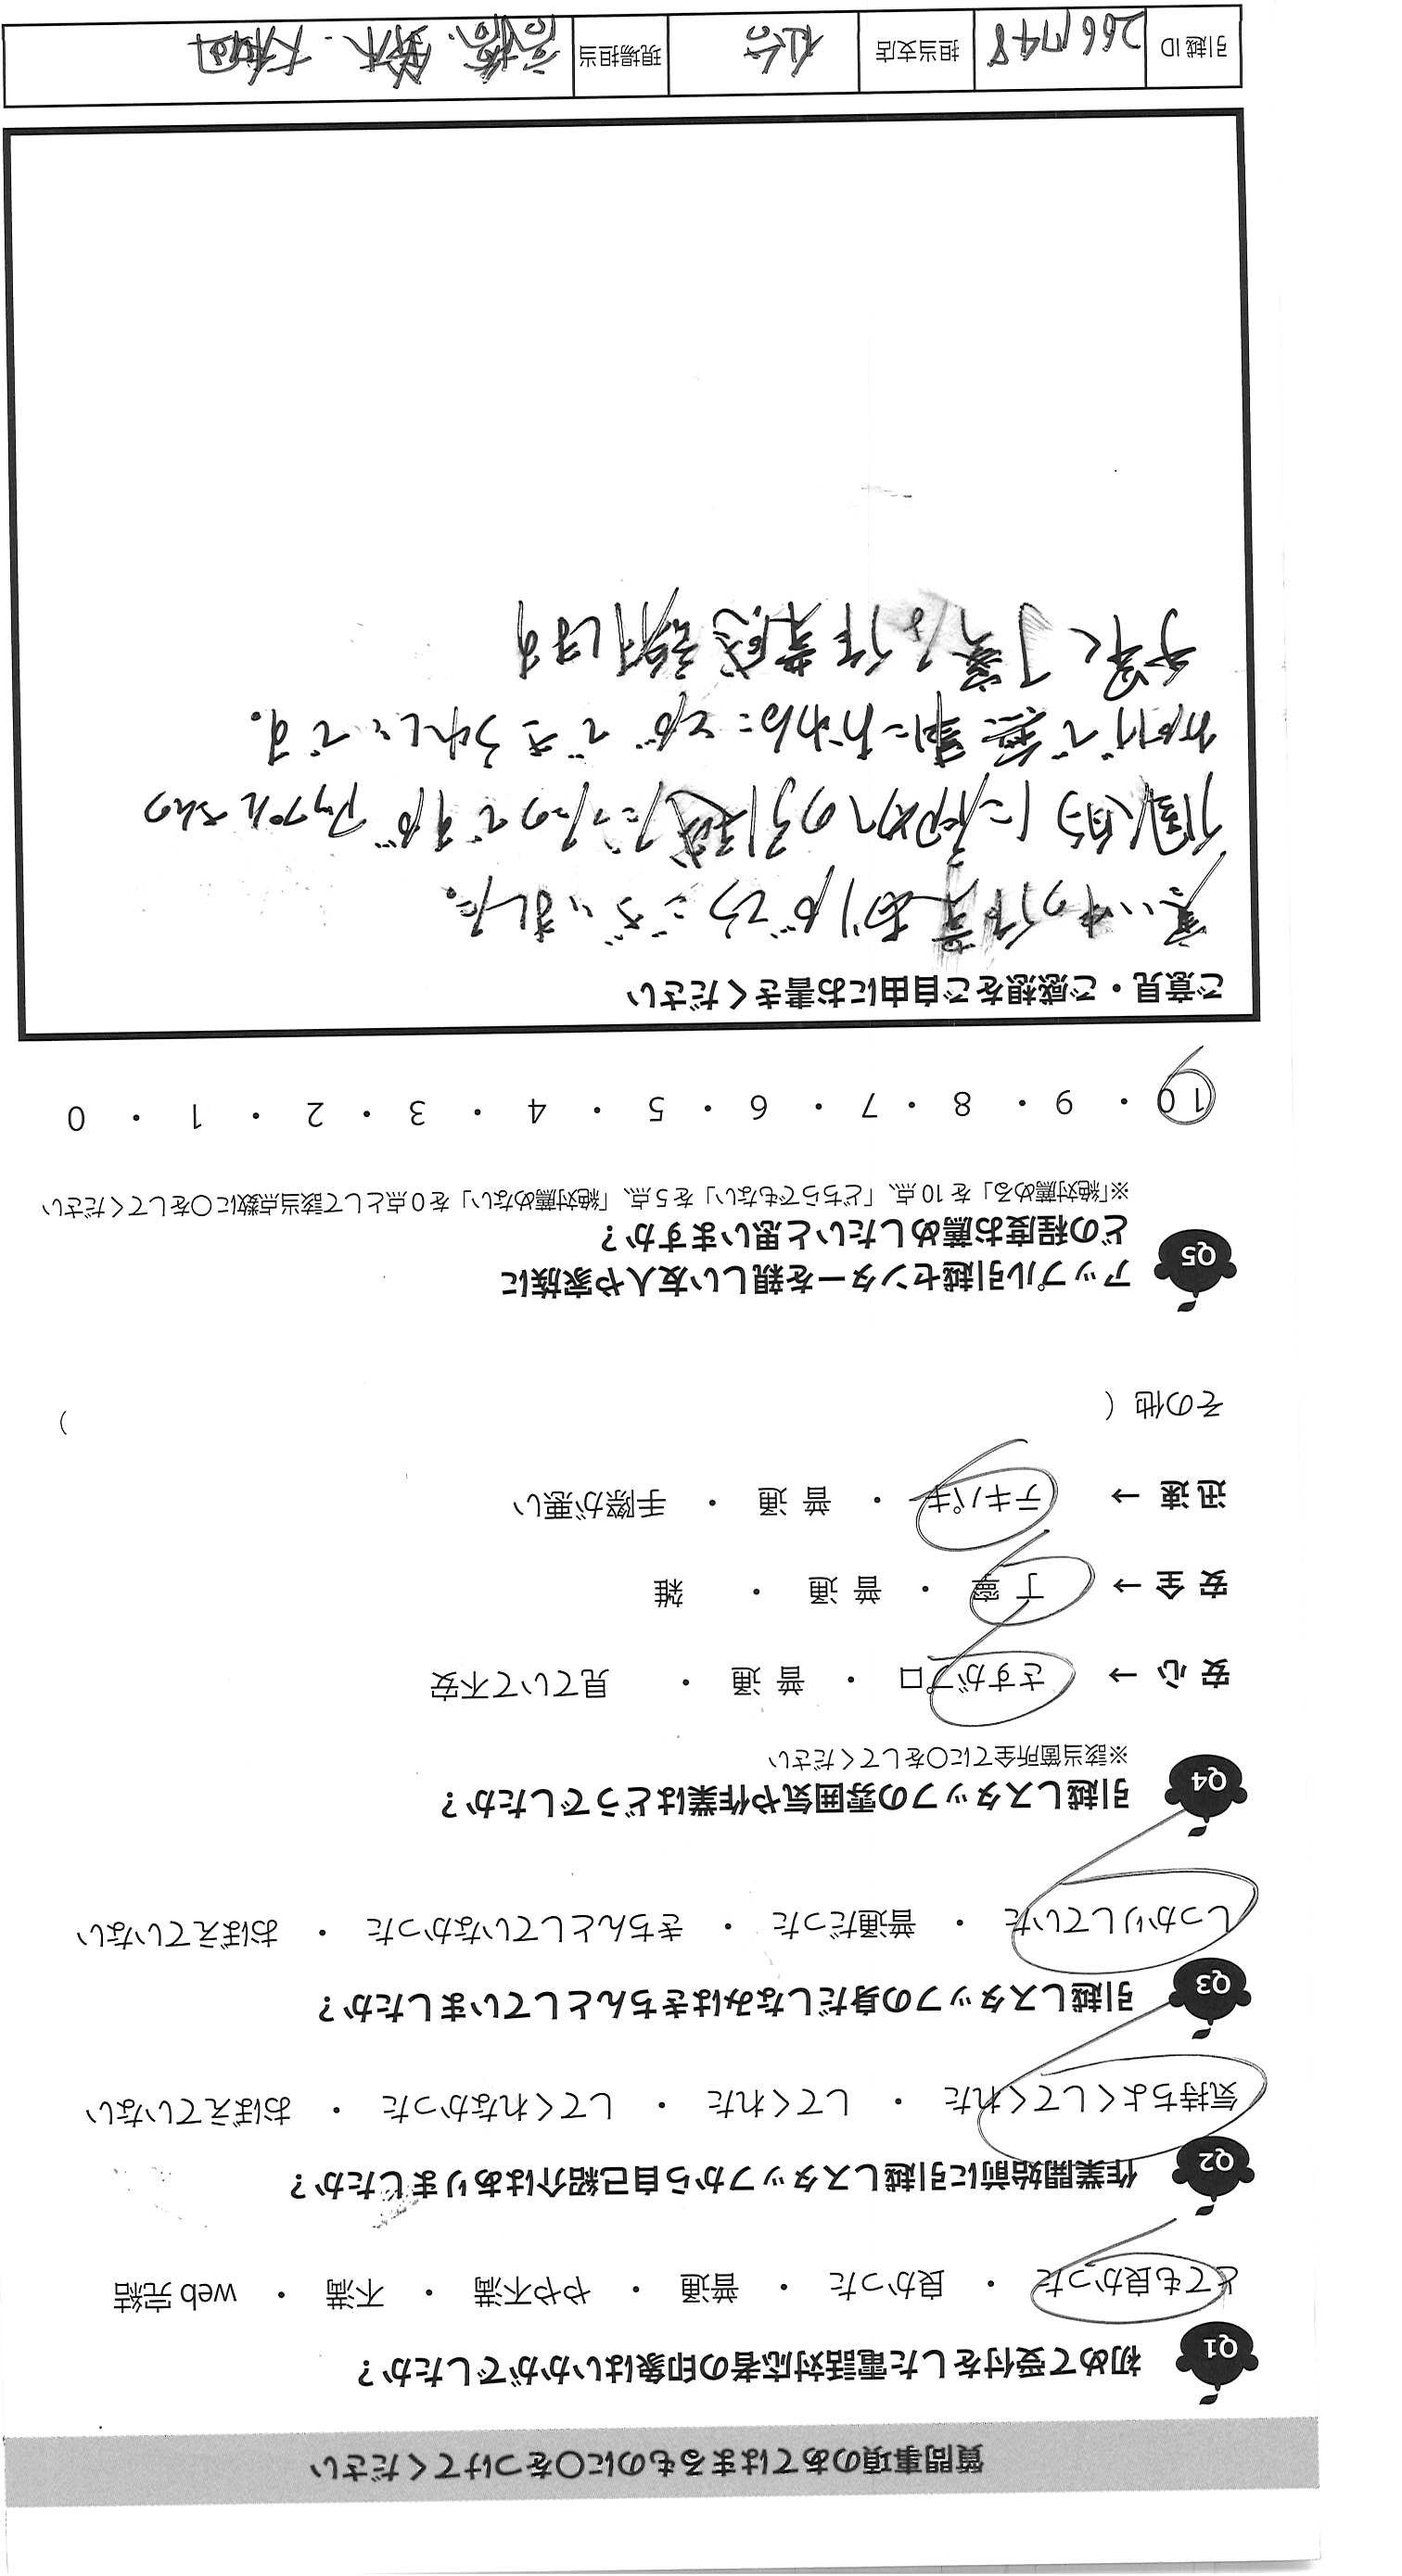 質問事項のあてはまるものに〇をつけてください
Q1 初めて受付をした電話対応者の印象はいかがでしたか？
とても良かった ・ 良かった ・ 普通 ・ やや不満 ・ 不満 ・ web 完結
Q2 作業開始前に引越しスタッフから自己紹介はありましたか？
気持ちよくしてくれた ・ してくれた ・ してくれなかった ・ おぼえていない
Q3 引越しスタッフの身だしなみはきちんとしていましたか？
しっかりしていた ・ 普通だった ・ きちんとしていなかった ・ おぼえていない
Q4 引越しスタッフの雰囲気や作業はどうでしたか？
※該当箇所全てに〇をしてください
安 心 → さすがプロ ・ 普 通 ・ 見ていて不安
安 全 → 丁 寧 ・ 普 通 ・ 雑
迅 速 → テキパキ ・ 普 通 ・ 手際が悪い
その他（ ）
Q5 アップル引越センターを親しい友人や家族に
どの程度お薦めしたいと思いますか？
※「絶対薦める」を 10 点、「どちらでもない」を 5 点、「絶対薦めない」を 0 点として該当点数に〇をしてください
10 ・ 9 ・ 8 ・ 7 ・ 6 ・ 5 ・ 4 ・ 3 ・ 2 ・ 1 ・ 0
ご意見・ご感想をご自由にお書きください
寒い中の作業ありがとうございました。
個人的に初めての引越だったのですが アップルさんの
おかげで無事におわることができうれしいです。
手早く丁寧な作業感謝します
引越 ID 2661748 担当支店 仙台 現場担当 高橋、鈴木、大和田